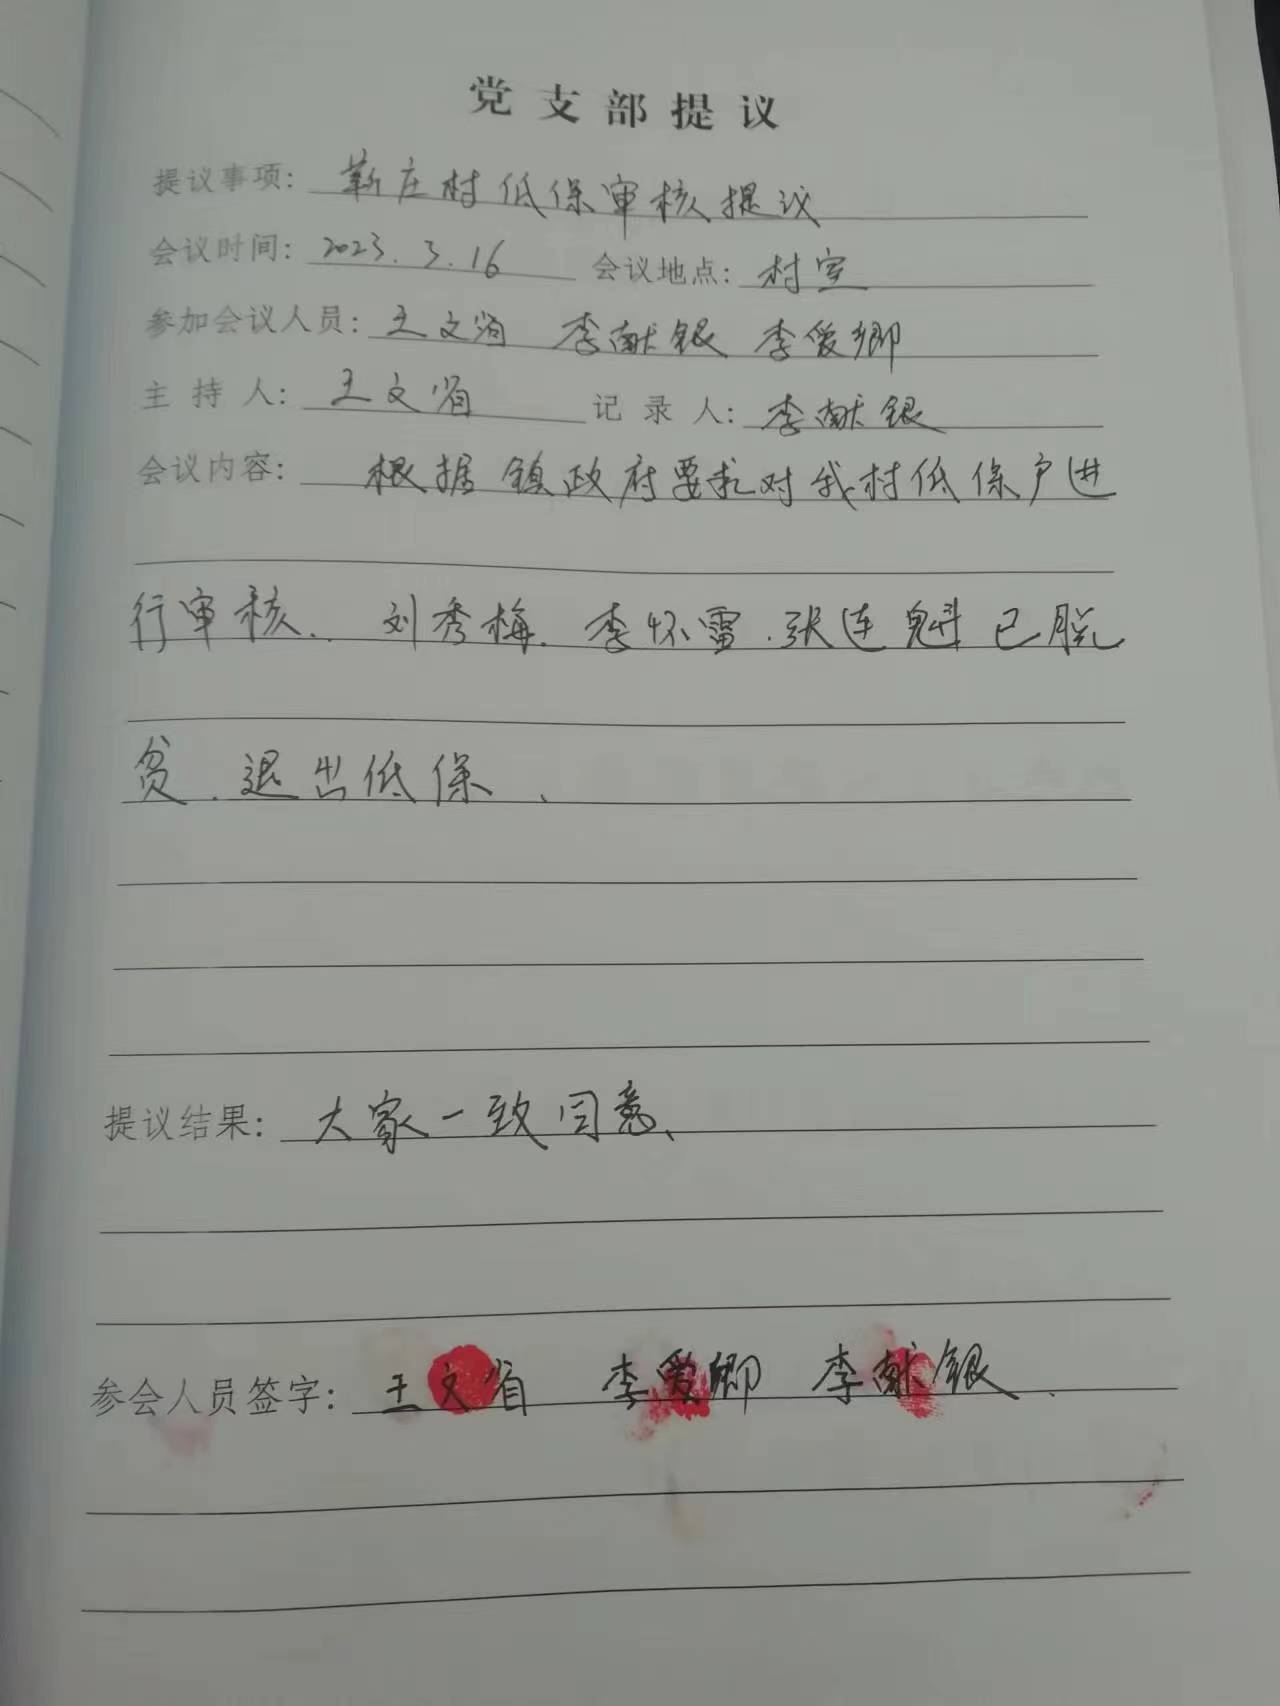 党支部提议
提议事项: 靳庄村低保审核提议
会议时间: 2023.3.16 会议地点: 村室
参加会议人员: 王文省 李献银 李爱卿
主持人: 王文省 记录人: 李献银
会议内容: 根据镇政府要求对我村低保户进
行审核. 刘秀梅. 李怀雷. 张连魁已脱
贫. 退出低保、
提议结果: 大家一致同意、
参会人员签字: 王文省 李爱卿 李献银、